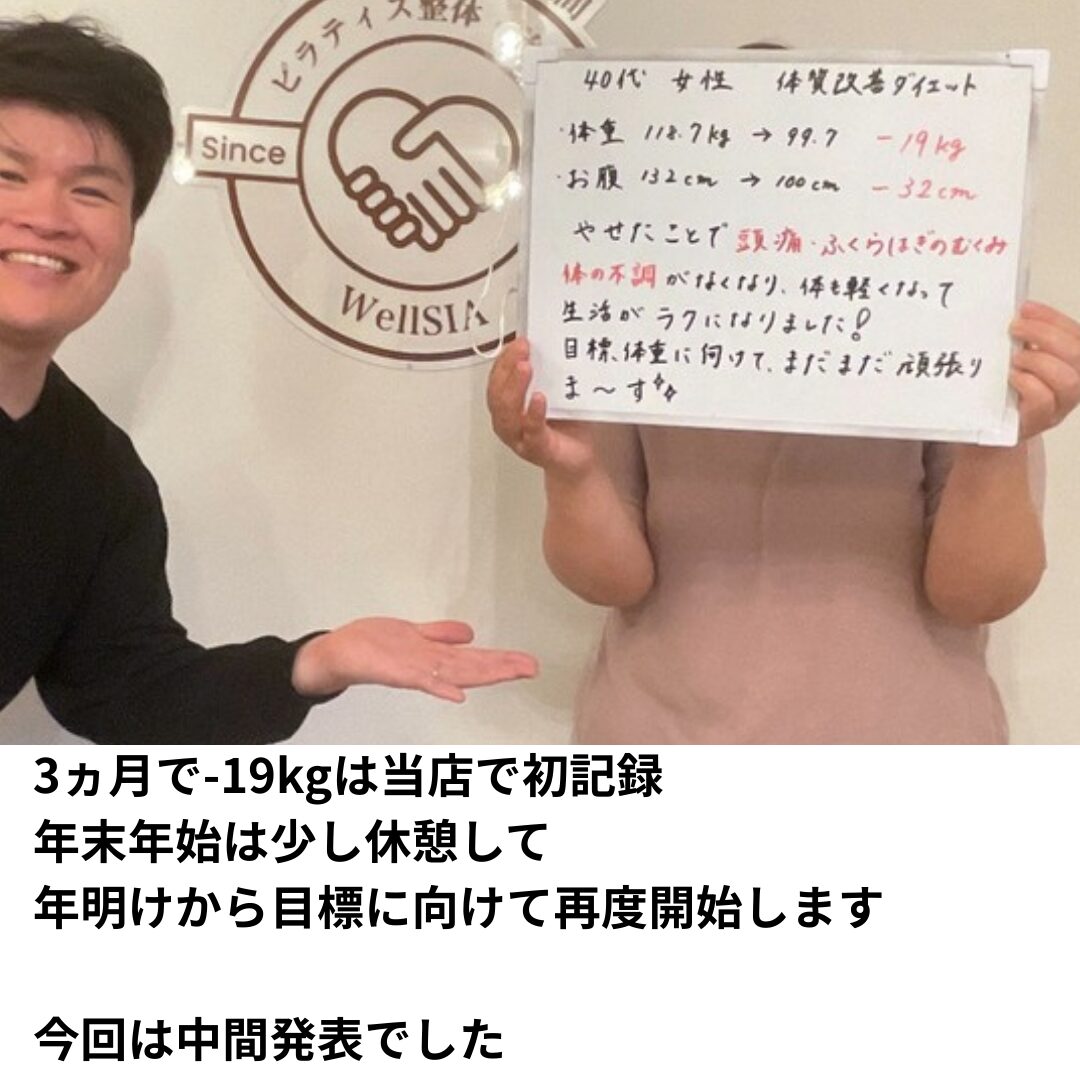 ピラティス整体
Since
WellSIA
40代 女性 体質改善ダイエット
・体重 118.7kg → 99.7 -19kg
・お腹 132cm → 100cm -32cm
やせたことで頭痛・ふくらはぎのむくみ
体の不調がなくなり、体も軽くなって
生活がラクになりました!
目標、体重に向けて、まだまだ頑張り
ま〜す
3ヵ月で-19kgは当店で初記録
年末年始は少し休憩して
年明けから目標に向けて再度開始します
今回は中間発表でした